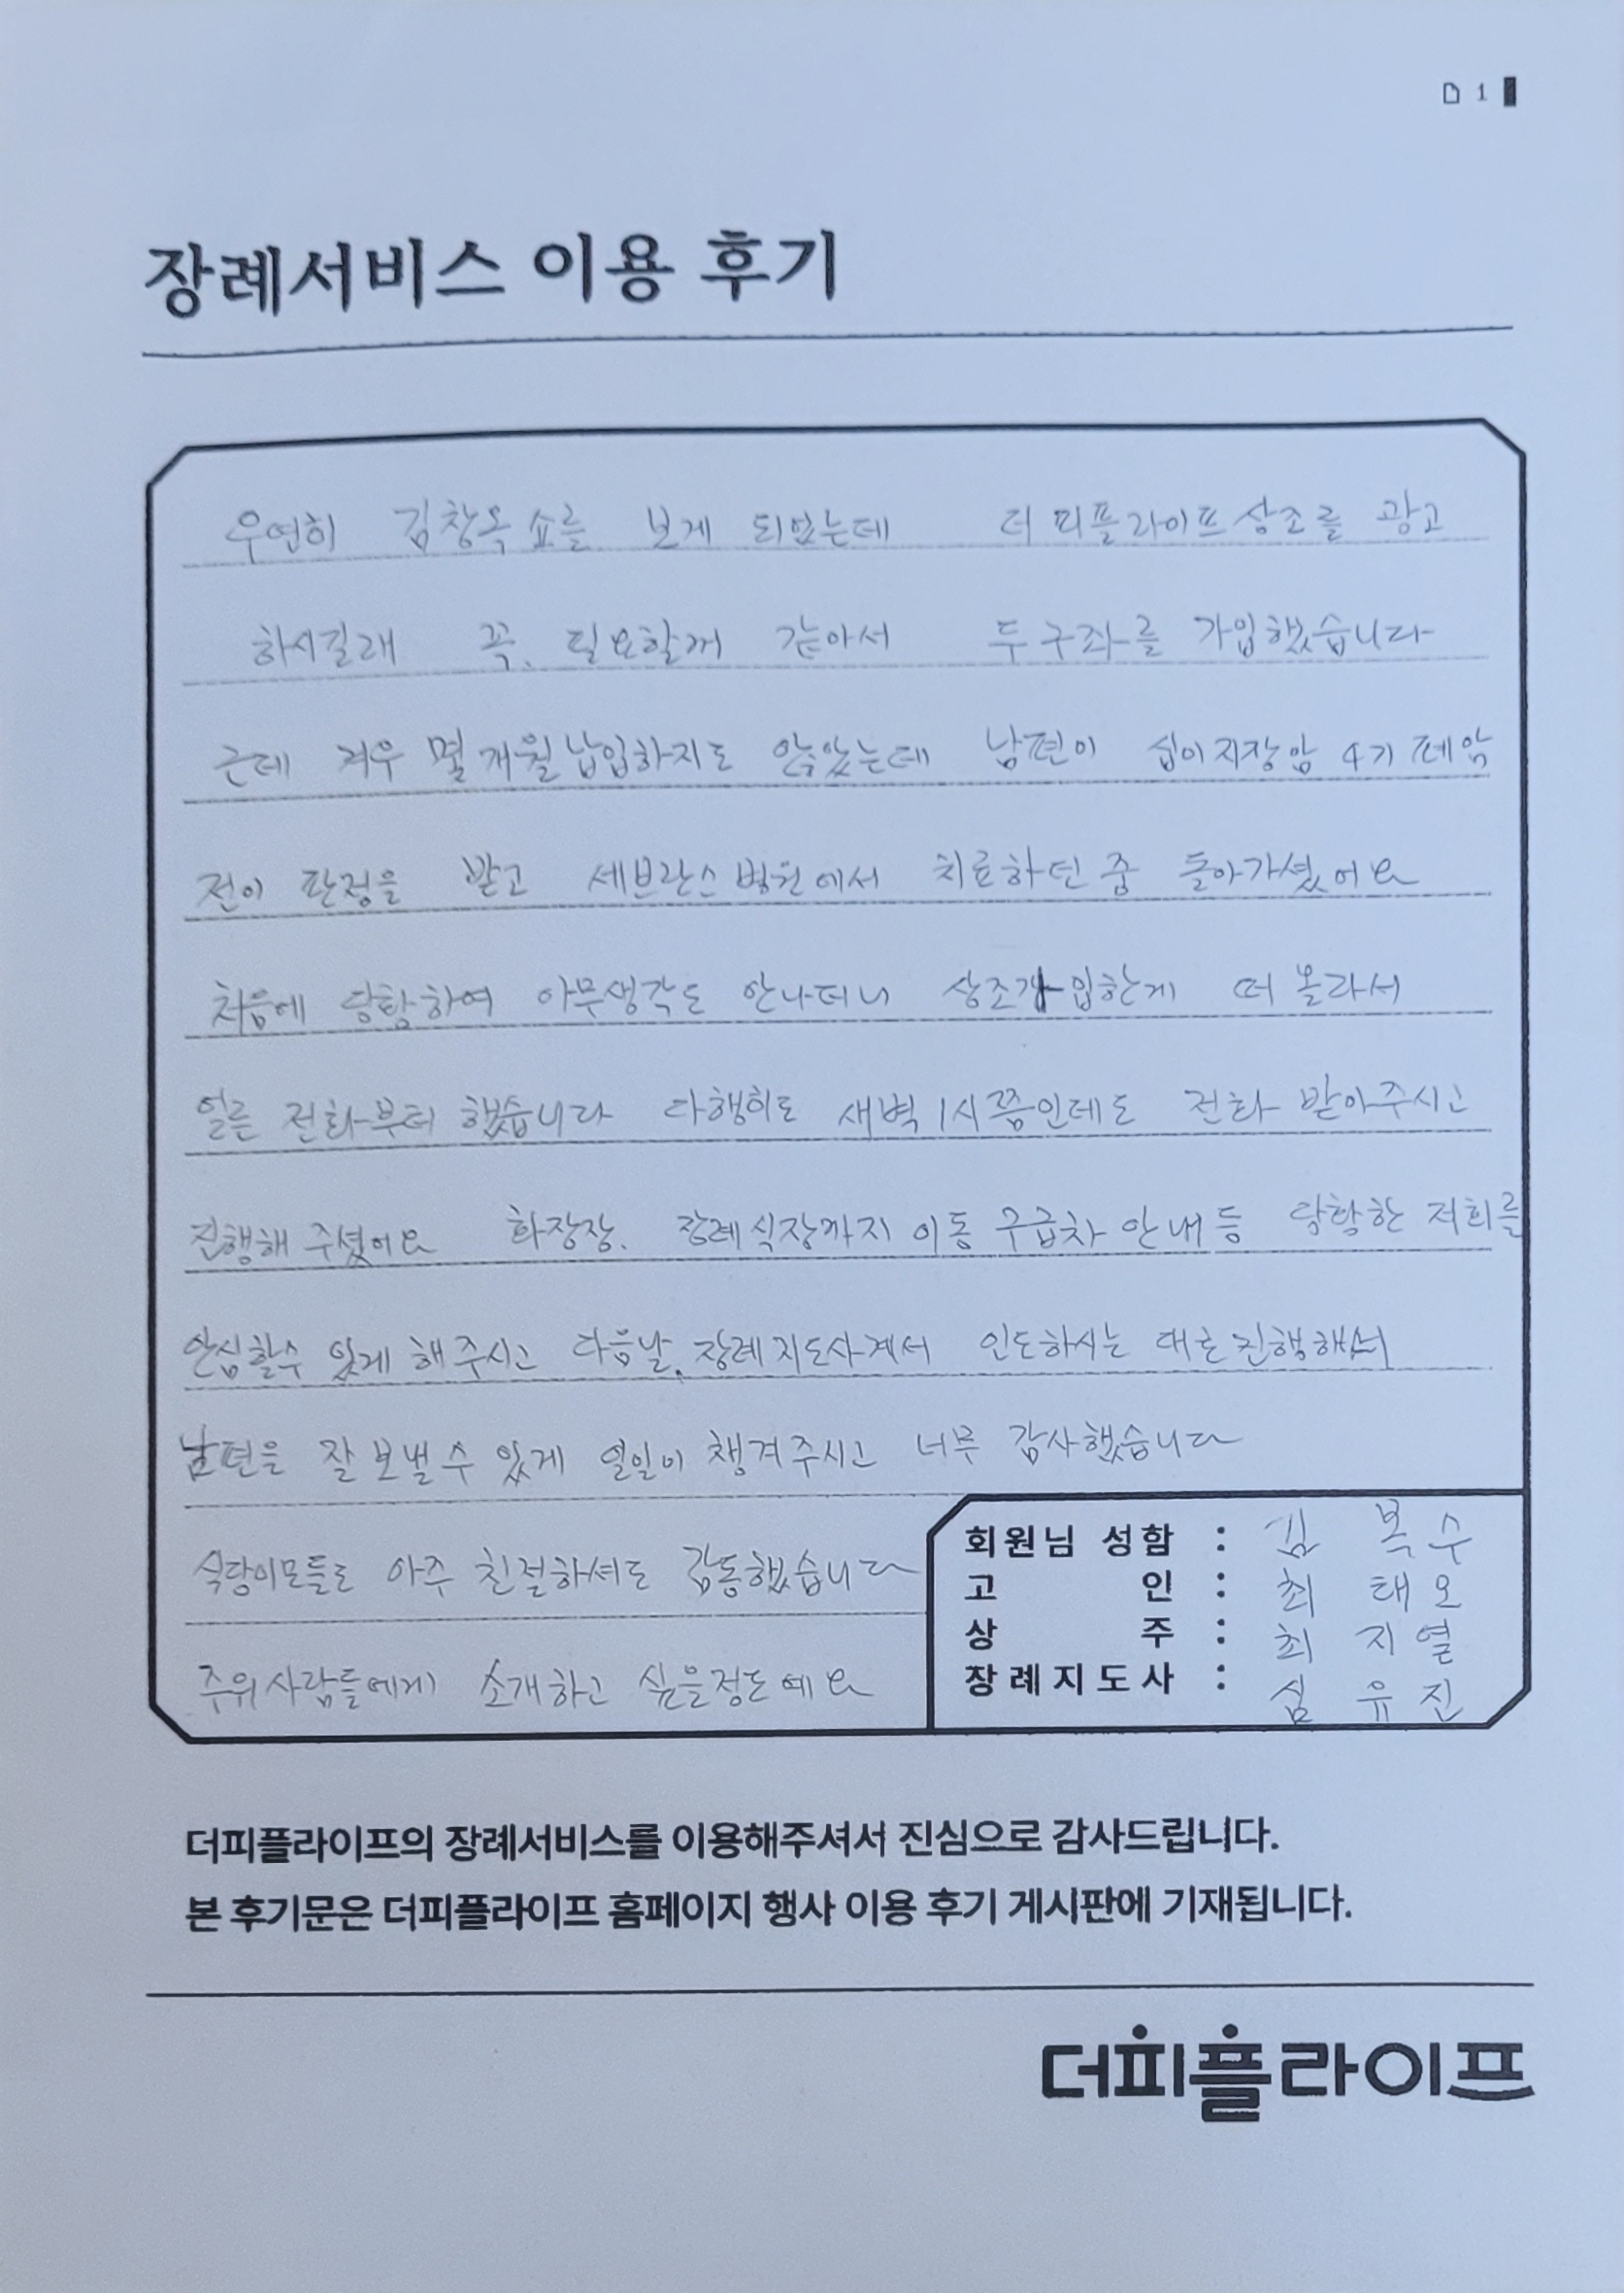 1
장례서비스 이용 후기
우연히 김창옥 쇼를 보게 되었는데 더 피플라이프상조를 광고
하시길래 꼭, 필요할꺼 같아서 두구좌를 가입했습니다
근데 겨우 몇개월 납입하지도 않았는데 남편이 십이지장암 4기 폐암
전이 판정을 받고 세브란스병원에서 치료하던 중 돌아가셨어요
처음에 당황하여 아무생각도 안나더니 상조가입한게 떠 올라서
얼른 전화부터 했습니다 다행히도 새벽 1시쯤인데도 전화 받아주시고
진행해 주셨어요 화장장, 장례식장까지 이동 구급차 안내등 당황한 저희를
안심할수 있게 해주시고 다음날, 장례지도사께서 인도하시는 대로 진행해서
남편을 잘 보낼수 있게 일일이 챙겨주시고 너무 감사했습니다
식당이모들도 아주 친절하셔도 감동했습니다
주위사람들에게 소개하고 싶을정도예요
회원님 성함 : 김 복 수
고 인 : 최 태 오
상 주 : 최 지 열
장례지도사 : 심 유 진
더피플라이프의 장례서비스를 이용해주셔서 진심으로 감사드립니다.
본 후기문은 더피플라이프 홈페이지 행사 이용 후기 게시판에 기재됩니다.
더피플라이프